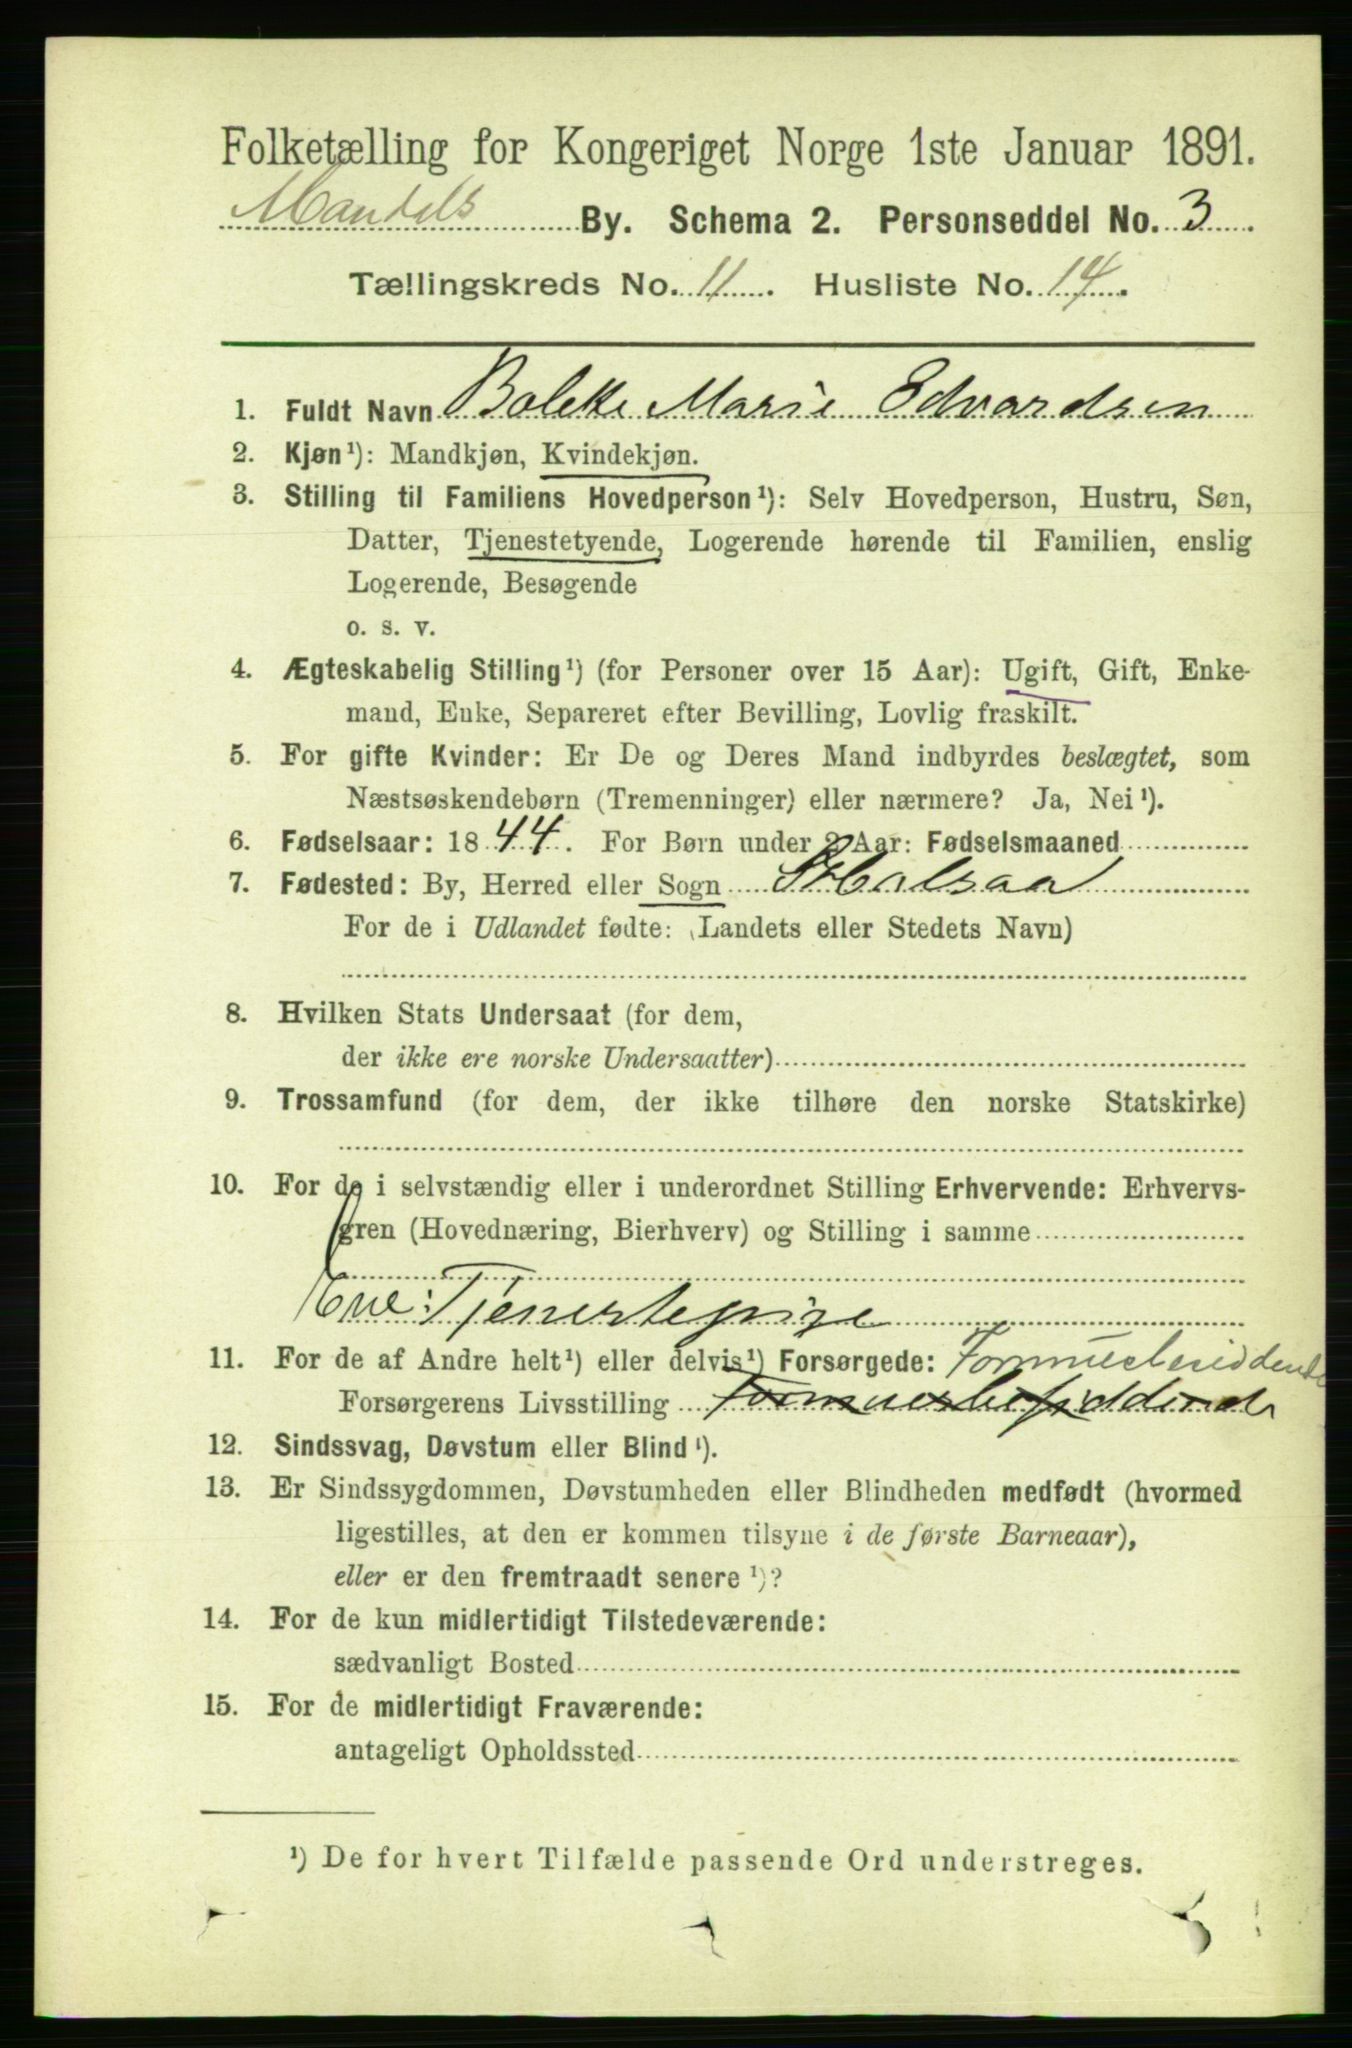 Folketælling for Kongeriget Norge 1ste Januar 1891.
Mandals By. Schema 2. Personseddel No. 3.
Tællingskreds No. 11. Husliste No. 14.
1. Fuldt Navn Bolette Marie Edvardsen
2. Kjøn¹): Mandkjøn, Kvindekjøn.
3. Stilling til Familiens Hovedperson¹): Selv Hovedperson, Hustru, Søn,
Datter, Tjenestetyende, Logerende hørende til Familien, enslig
Logerende, Besøgende
o. s. v.
4. Ægteskabelig Stilling¹) (for Personer over 15 Aar): Ugift, Gift, Enke-
mand, Enke, Separeret efter Bevilling, Lovlig fraskilt.
5. For gifte Kvinder: Er De og Deres Mand indbyrdes beslægtet, som
Næstsøskendebørn (Tremenninger) eller nærmere? Ja, Nei¹).
6. Fødselsaar: 1844. For Børn under 2 Aar: Fødselsmaaned
7. Fødested: By, Herred eller Sogn Halsaa
For de i Udlandet fødte: (Landets eller Stedets Navn)
8. Hvilken Stats Undersaat (for dem,
der ikke ere norske Undersaatter)
9. Trossamfund (for dem, der ikke tilhøre den norske Statskirke)
10. For de i selvstændig eller i underordnet Stilling Erhvervende: Erhvervs-
gren (Hovednæring, Bierhverv) og Stilling i samme
Tjenestepige
11. For de af Andre helt¹) eller delvis¹) Forsørgede: Formuesbesiddende
Forsørgerens Livsstilling Formuesbesiddende
12. Sindssvag, Døvstum eller Blind¹).
13. Er Sindssygdommen, Døvstumheden eller Blindheden medfødt (hvormed
ligestilles, at den er kommen tilsyne i de første Barneaar),
eller er den fremtraadt senere¹)?
14. For de kun midlertidigt Tilstedeværende:
sædvanligt Bosted
15. For de midlertidigt Fraværende:
antageligt Opholdssted
¹) De for hvert Tilfælde passende Ord understreges.